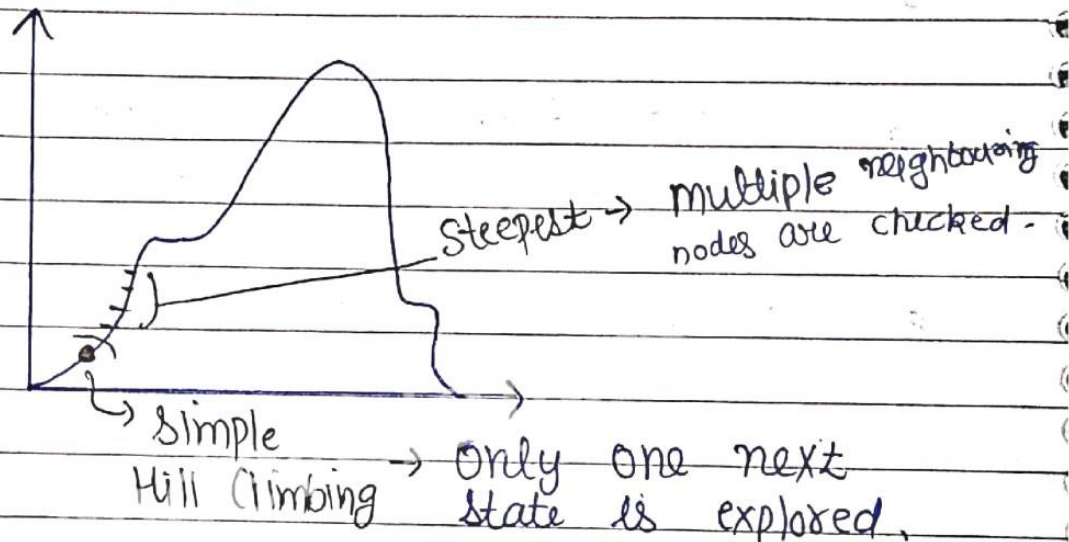 Steepest → Multiple neighbouring
nodes are checked.
Simple
Hill Climbing → Only one next
state is explored.